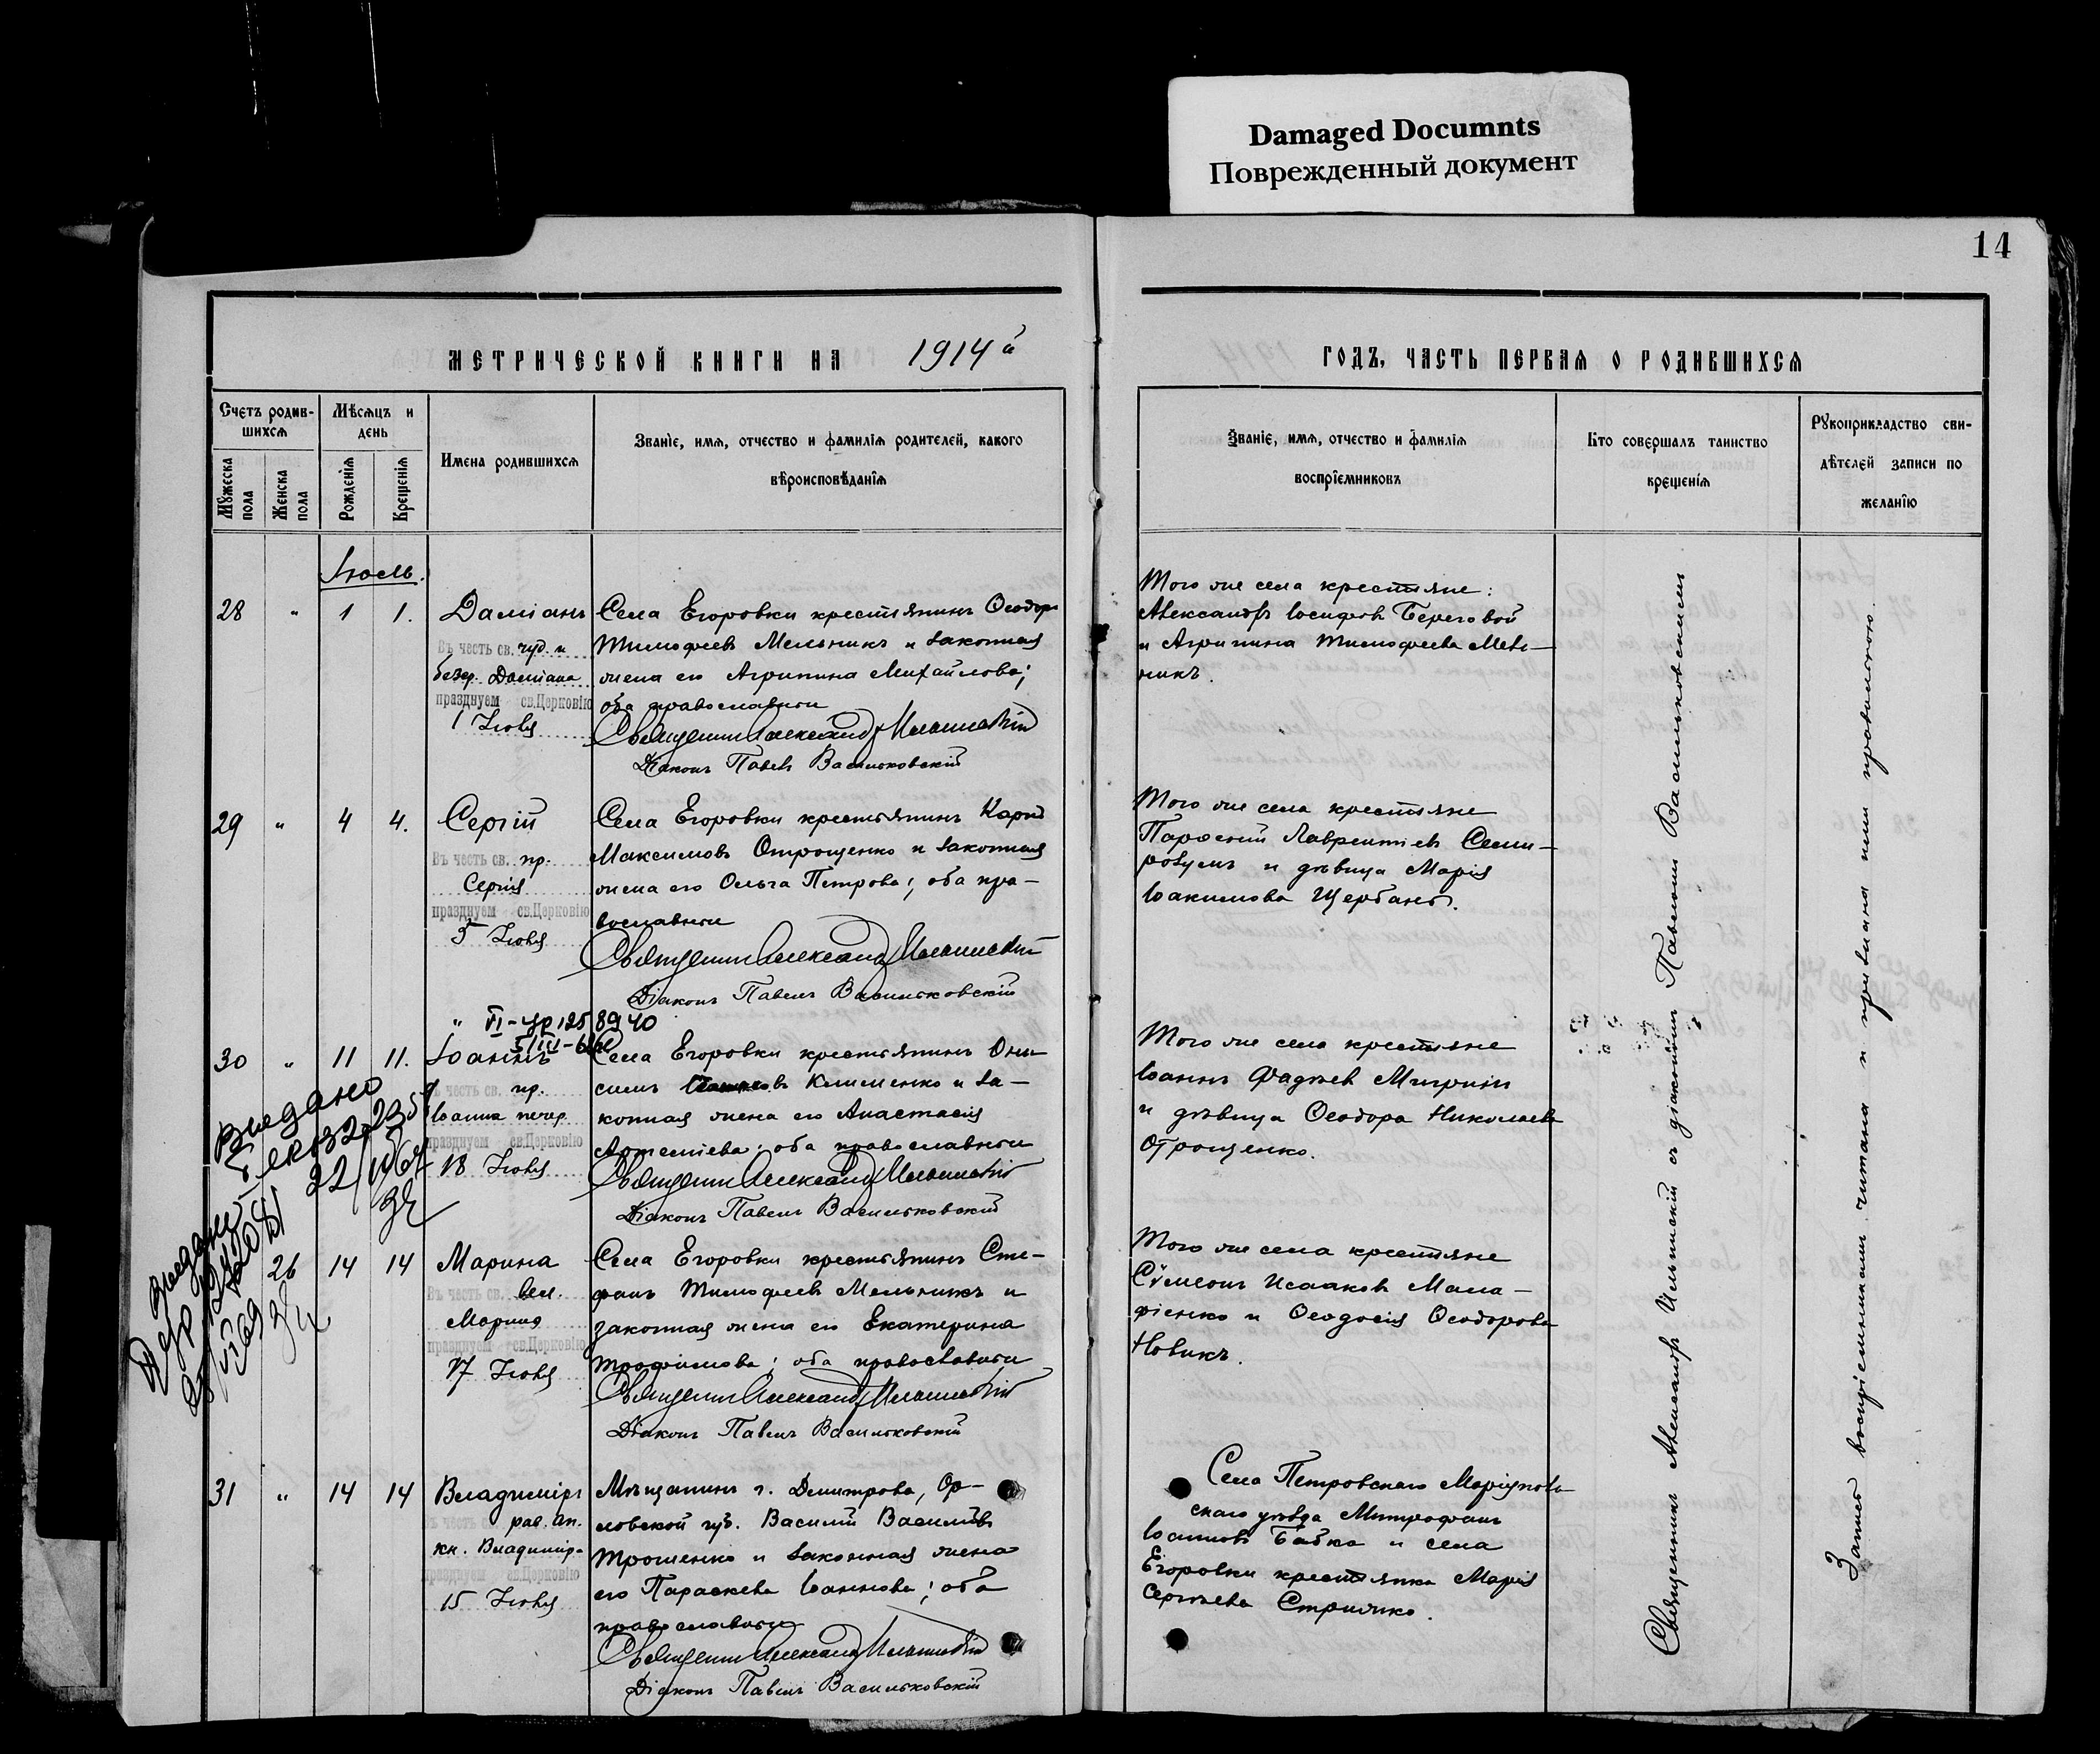 Damaged Documnts
Поврежденный документ
14
МЕТРИЧЕСКОЙ КНИГИ НА 1914й
ГОДЪ, ЧАСТЬ ПЕРВАЯ О РОДИВШИХСЯ
Счетъ родив-
шихся
Мужеска пола
Женска пола
Мѣсяцъ и
день
Рожденія
Крещенія
Имена родившихся
Званіе, имя, отчество и фамилія родителей, какого
вѣроисповѣданія
Званіе, имя, отчество и фамилія
воспріемниковъ
Кто совершалъ таинство
крещенія
Рукоприкладство сви-
дѣтелей записи по
желанію
Іюль.
28 " 1 1.
Даміанъ
Въ честь св. чуд. и
безср. Даміана
празднуем св.Церковію
1 Іюля
Села Егоровки крестьянинъ Ѳеодоръ
Тимоѳеевъ Мельникъ и законная
жена его Агрипина Михайлова;
оба православные
Священникъ Александръ Ильинскій
Діаконъ Павелъ Васильковскій
Того же села крестьяне:
Александръ Іосифовъ Береговой
и Агрипина Тимоѳеева Мель-
никъ.
29 " 4 4.
Сергій
Въ честь св. пр.
Сергія
празднуем св.Церковію
5 Іюля
Села Егоровки крестьянинъ Карпъ
Максимовъ Отрощенко и законная
жена его Ольга Петрова; оба пра-
вославные
Священникъ Александръ Ильинскій
Діаконъ Павелъ Васильковскій
Того же села крестьяне
Парѳеній Лаврентіевъ Семи-
розумъ и дѣвица Марія
Іоакимова Щербань.
" VI-УР 125 8940
30 " 11 11.
Іоаннъ
Въ честь св. пр.
Іоанна печер.
празднуем св.Церковію
18 Іюля
Села Егоровки крестьянинъ Они-
симъ Клименко и за-
конная жена его Анастасія
Артеміева; оба православные
Священникъ Александръ Ильинскій
Діаконъ Павелъ Васильковскій
Того же села крестьяне
Іоаннъ Фадѣевъ Мигринъ
и дѣвица Ѳеодора Николаева
Отрощенко.
Выдано
26 14 14
Марина
Въ честь св. вел.
Марины
празднуем св.Церковію
17 Іюля
Села Егоровки крестьянинъ Сте-
фанъ Тимоѳеевъ Мельникъ и
законная жена его Екатерина
Трофимова; оба православные
Священникъ Александръ Ильинскій
Діаконъ Павелъ Васильковскій
Того же села крестьяне
Сѵмеонъ Исааковъ Мала-
фіенко и Ѳеодосія Ѳеодорова
Новикъ.
31 " 14 14
Владиміръ
Въ честь св. рав. ап.
кн. Владимір.
празднуем св.Церковію
15 Іюля
Мѣщанинъ г. Дмитрова, Ор-
ловской губ. Василій Васильевъ
Трошенко и законная жена
его Параскева Іоаннова; оба
православные
Священникъ Александръ Ильинскій
Діаконъ Павелъ Васильковскій
Села Петровскаго Маріуполь-
скаго уѣзда Митрофанъ
Іоанновъ Бабко и села
Егоровки крестьянка Марія
Сергѣева Стрижко.
Священникъ Александръ Ильинскій съ діакономъ Павломъ Васильковскимъ
Запись воспріемникамъ читана и признана ими правильною.